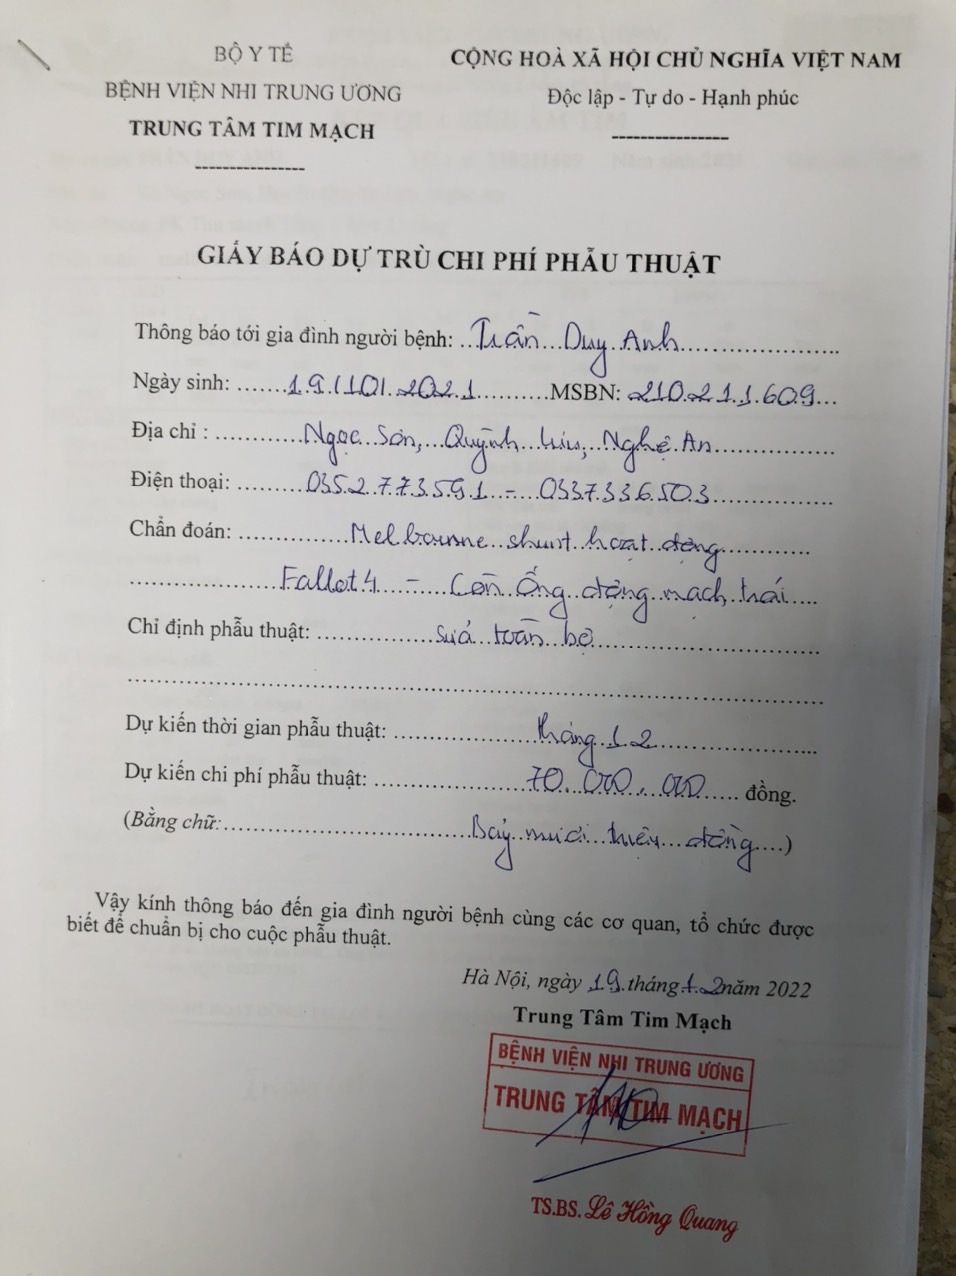 BỘ Y TẾ
BỆNH VIỆN NHI TRUNG ƯƠNG
TRUNG TÂM TIM MẠCH
----------------
CỘNG HOÀ XÃ HỘI CHỦ NGHĨA VIỆT NAM
Độc lập - Tự do - Hạnh phúc
-----------------
GIẤY BÁO DỰ TRÙ CHI PHÍ PHẪU THUẬT
Thông báo tới gia đình người bệnh: Trần Duy Anh
Ngày sinh: 19/101.2021 MSBN: 210.211.609
Địa chỉ : Ngọc Sơn, Quỳnh Lưu, Nghệ An
Điện thoại: 0352773591 - 0337336503
Chẩn đoán: Melbourne shunt hoạt động
Fallot 4 - Còn Ống động mạch trái
Chỉ định phẫu thuật: Sửa toàn bộ
Dự kiến thời gian phẫu thuật: tháng 12
Dự kiến chi phí phẫu thuật: 70.000.000 đồng.
(Bằng chữ: Bảy mươi triệu đồng)
Vậy kính thông báo đến gia đình người bệnh cùng các cơ quan, tổ chức được
biết để chuẩn bị cho cuộc phẫu thuật.
Hà Nội, ngày 19 tháng 12 năm 2022
Trung Tâm Tim Mạch
BỆNH VIỆN NHI TRUNG ƯƠNG
TRUNG TÂM TIM MẠCH
TS.BS. Lê Hồng Quang